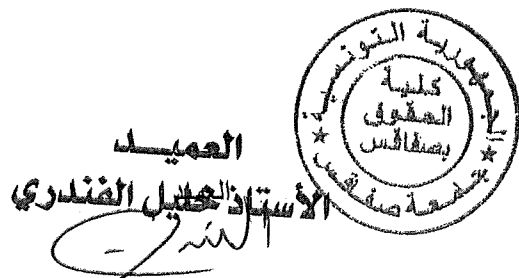 الجمهورية التونسية
كلية
الحقوق
بصفاقس
جامعة صفاقس
العميد
الأستاذ خليل الفندري